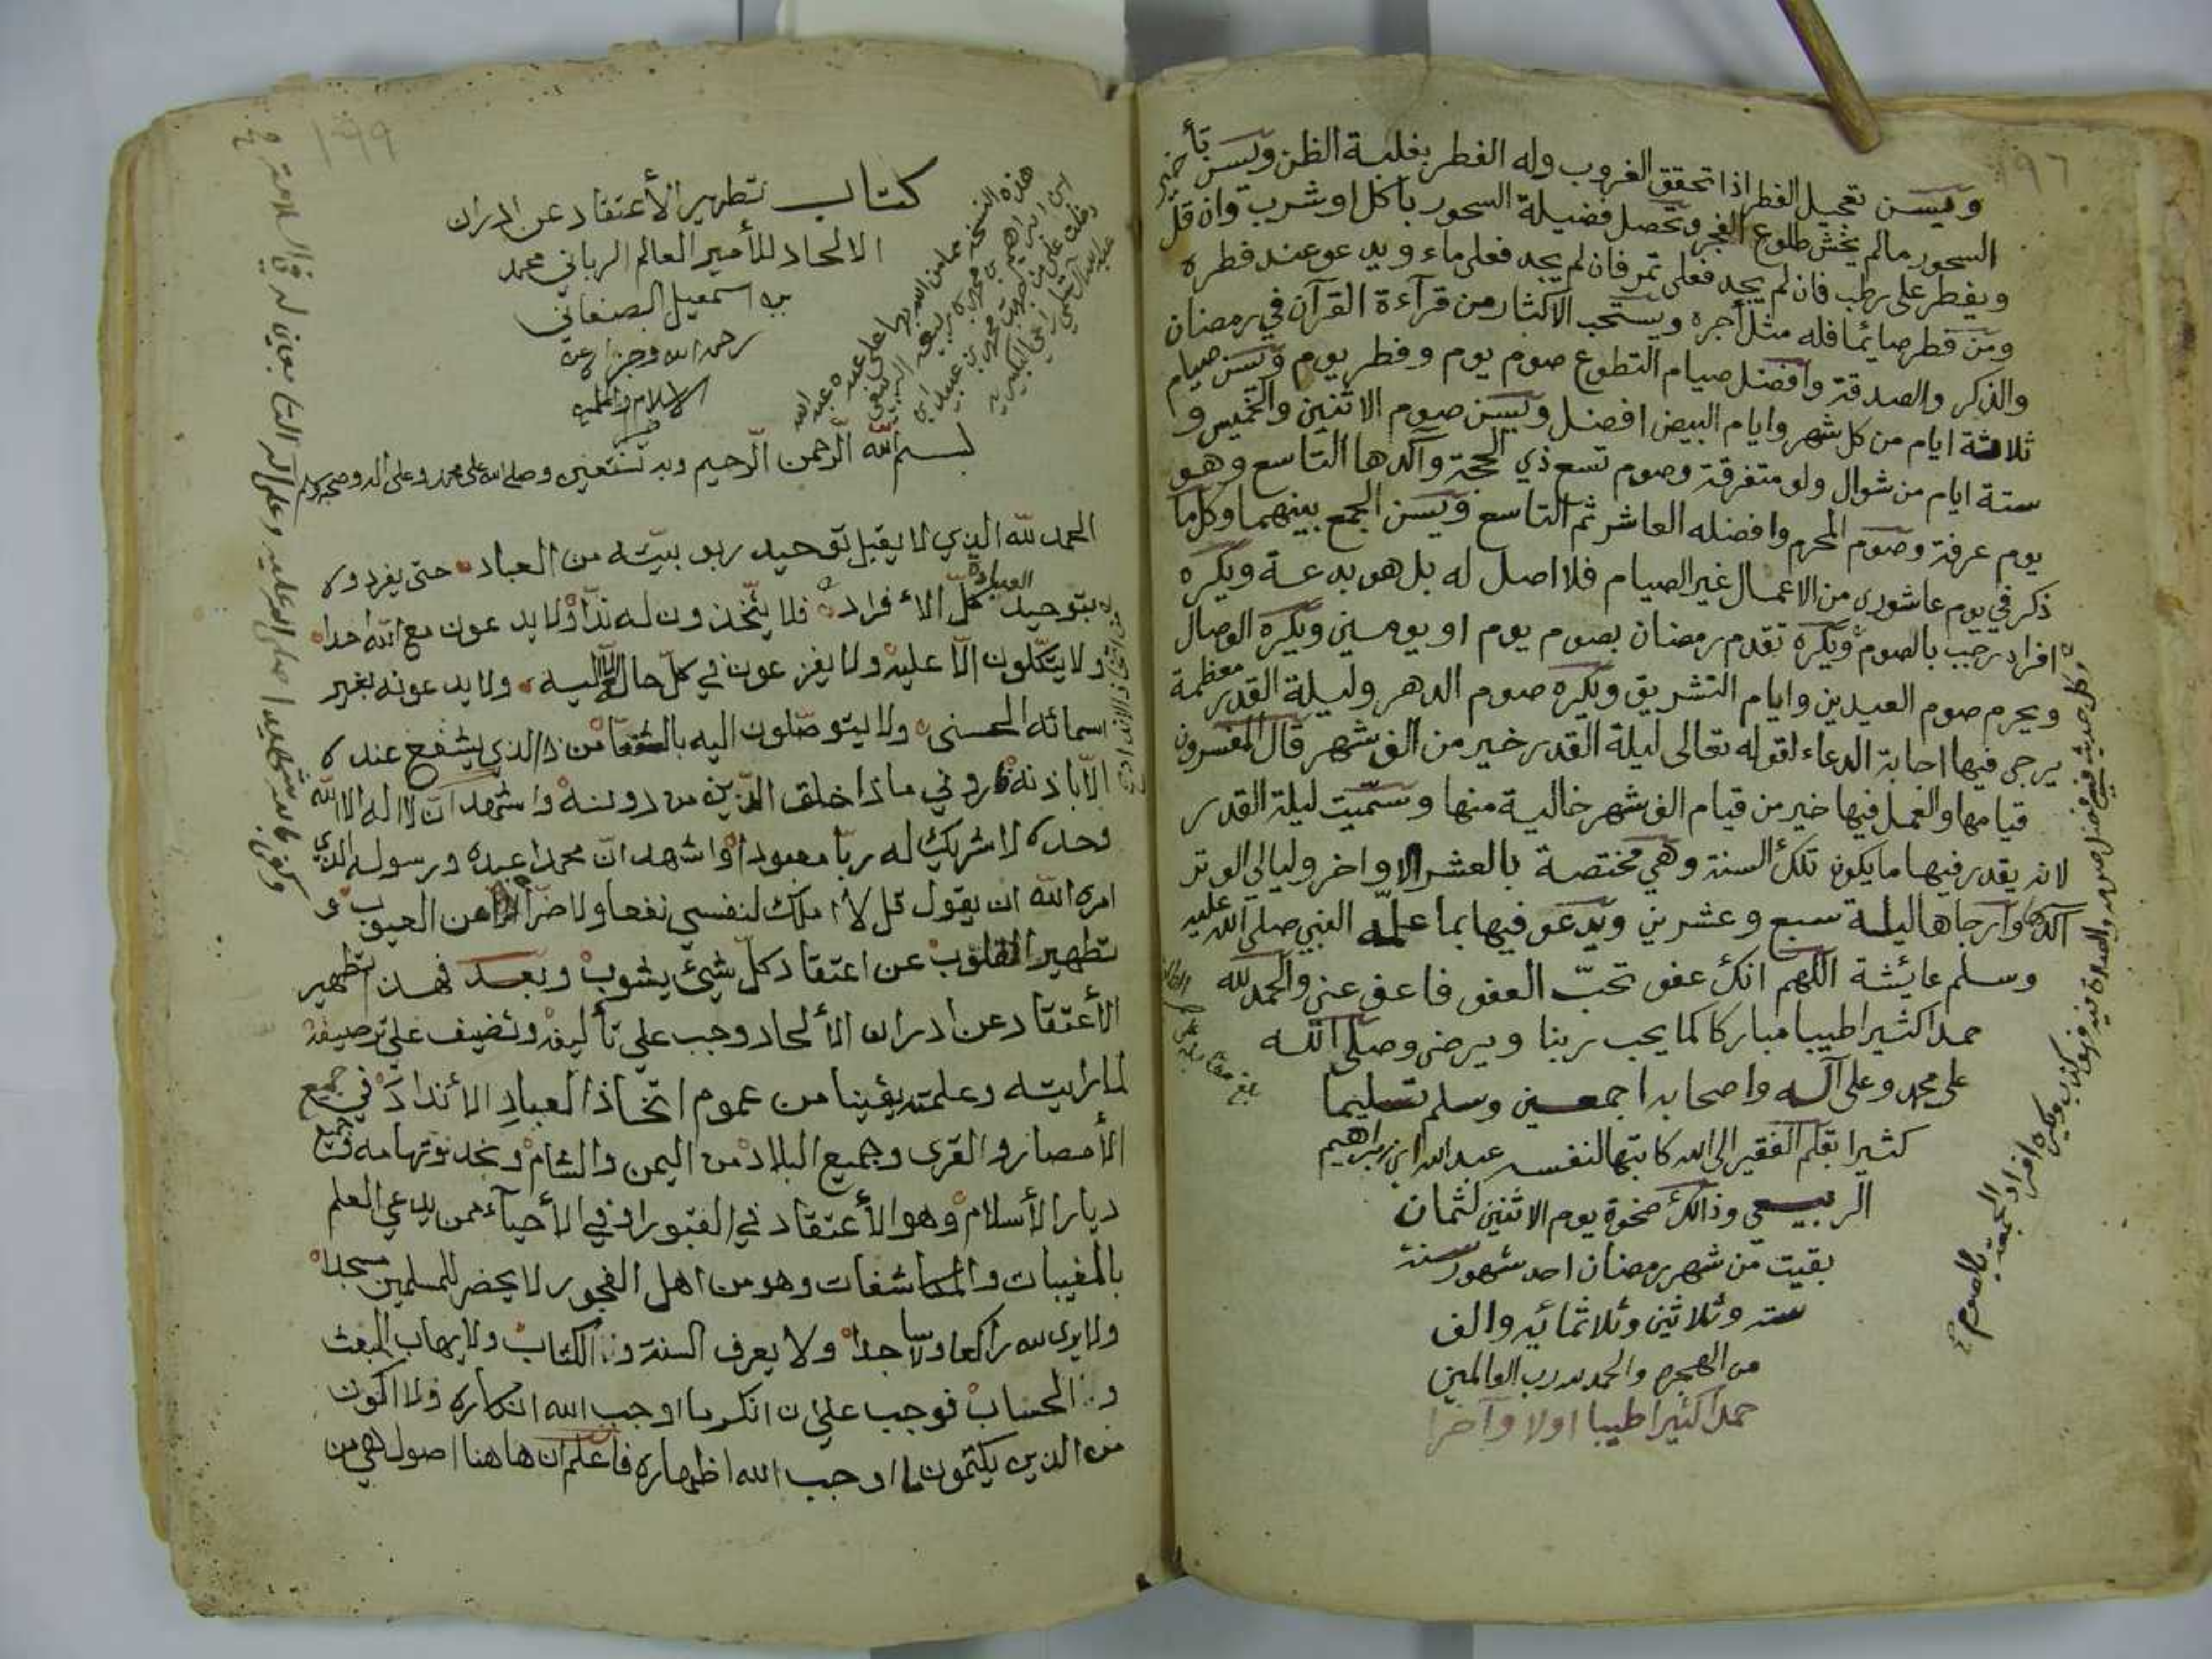 ويسن تعجيل الفطر اذا تحقق الغروب وله الفطر بغلبة الظن ويسن تأخير
السحور مالم يخش طلوع الفجر وتحصل فضيلة السحور باكل او شرب وان قل
ويفطر على رطب فان لم يجد فعلى تمر فان لم يجد فعلى ماء ويدعو عند فطره
ومن فطر صائما فله مثل أجره ويستحب الاكثار من قرآءة القرآن في رمضان
والذكر والصدقة وافضل صيام التطوع صوم يوم وفطر يوم ويسن صيام
ثلاثة ايام من كل شهر وايام البيض افضل ويسن صوم الاثنين والخميس و
ستة ايام من شوال ولو متفرقة وصوم تسع ذي الحجة وآكدها التاسع وهو
يوم عرفة وصوم المحرم وافضله العاشر ثم التاسع ويسن الجمع بينهما وكل ما
ذكر في يوم عاشورى من الاعمال غير الصيام فلا اصل له بل هو بدعة ويكره
افراد رجب بالصوم ويكره تقدم رمضان بصوم يوم او يومين ويكره الوصال
ويحرم صوم العيدين وايام التشريق ويكره صوم الدهر وليلة القدر معظمة
يرجى فيها اجابة الدعاء لقوله تعالى ليلة القدر خير من الف شهر قال المفسرون
قيامها والعمل فيها خير من قيام الف شهر خالية منها وسميت ليلة القدر
لانه يقدر فيها ما يكون تلك السنة وهي مختصة بالعشر الاواخر وليالي الوتر
آكدها وارجاها ليلة سبع وعشرين ويدعو فيها بما علمه النبي صلى الله عليه
وسلم عائشة اللهم انك عفو تحب العفو فاعف عني والحمد لله
حمدا كثيرا طيبا مباركا كما يحب ربنا ويرضى وصلى الله
على محمد وعلى آله واصحابه اجمعين وسلم تسليما
كثيرا بقلم الفقير الى الله كاتبها لنفسه عبد الله ابن ابراهيم
الربيعي وذالك ضحوة يوم الاثنين لثمان
بقيت من شهر رمضان احد شهور سنة
سته وثلاثين وثلاثمائه والف
من الهجره والحمد لله رب العالمين
حمدا كثيرا طيبا اولا وآخرا
كتاب تطهير الأعتقاد عن ادران
الالحاد للأمير العالم الرباني محمد
بن اسمعيل الصنعاني
رحمه الله وجزاه عن
الاسلام والمسلمين
خير
هذه النسخة مما من الله بها على عبده عبد الله
ابن ابراهيم بن محمد
بسم الله الرحمن الرحيم وبه نستعين وصلى الله على محمد وعلى آله وصحبه وسلم
الحمد لله الذي لا يقبل توحيد ربوبيته من العباد حتى يفردوه
بتوحيد العبادة كل الافراد فلا يتخذون له ندا ولا يدعون مع الله احدا
ولا يتكلون الا عليه ولا يفزعون في كل حال الا اليه ولا يدعونه بغير
اسمائه الحسنى ولا يتوصلون اليه بالشفعا من ذا الذي يشفع عنده
الا باذنه فاروني ماذا خلق الذين من دونه واشهد ان لا اله الا الله
وحده لا شريك له ربا معبودا واشهد ان محمدا عبده ورسوله الذي
امره الله ان يقول قل لا املك لنفسي نفعا ولا ضرا من العيوب و
تطهير القلوب عن اعتقاد كل شيئ يشوب وبعد فهذا تطهير
الأعتقاد عن ادران الألحاد وجب علي تأليفه وتضيف علي ترصيفه
لما رايته وعلمته يقينا من عموم اتخاذ العباد الأنداد في جميع
الأمصار والقرى وجميع البلاد من اليمن والشام ونجد وتهامه وجميع
ديار الأسلام وهو الأعتقاد في القبور او في الأحياء ممن يدعي العلم
بالمغيبات والمكاشفات وهو من اهل الفجور لا يحضر للمسلمين مسجدا
ولا يرى لله راكعا ولا ساجدا ولا يعرف السنة ولا الكتاب ولا يهاب البعث
ولا الحساب فوجب علي ان انكر ما اوجب الله انكاره ولا اكون
من الذين يكتمون ما اوجب الله اظهاره فاعلم ان هاهنا اصول هي من